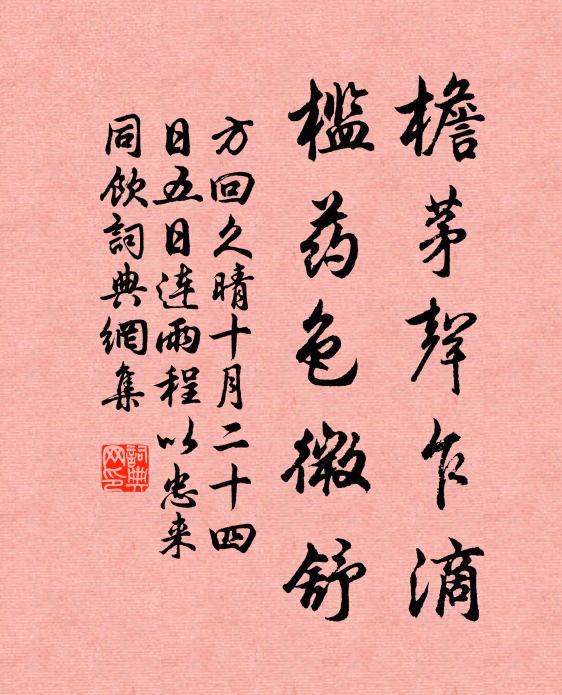 檐茅聲乍滴
槛药色微舒
方回久晴十月二十四
日五日連雨程以忠来
同飲詞典網集
詞典网印